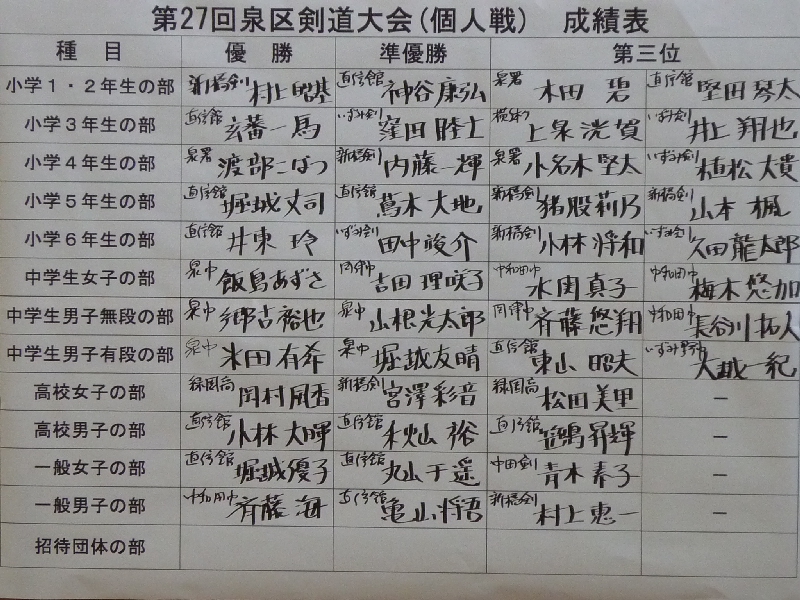 第27回泉区剣道大会(個人戦) 成績表
種目 優勝 準優勝 第三位
小学1・2年生の部 新橋剣 村上昭基 直信館 神谷康弘 泉署 木田碧 直信館 堅田琴太
小学3年生の部 直信館 玄蕃一馬 いずみ剣 窪田睦士 上泉滉賀 いずみ剣 井上翔也
小学4年生の部 泉署 渡部こはつ 新橋剣 内藤一輝 泉署 小名木堅太 いずみ剣 植松大貴
小学5年生の部 直信館 堀城丈司 直信館 蔦木大地 新橋剣 猪股莉乃 新橋剣 山本楓
小学6年生の部 直信館 井東玲 いずみ剣 田中竣介 新橋剣 小林将和 いずみ剣 久田龍太郎
中学生女子の部 泉中 飯島あずさ 岡津中 吉田理咲子 中和田中 水園真子 中和田中 梅木悠加
中学生男子無段の部 泉中 郷古裕也 泉中 山根光太郎 岡津中 斉藤悠翔 中和田中 長谷川拓人
中学生男子有段の部 泉中 米田有希 泉中 堀越友晴 直信館 東山昭夫 いずみ野中 大越一紀
高校女子の部 緑園高 岡村風香 新橋剣 宮澤彩音 緑園高 松田美里 －
高校男子の部 直信館 小林大暉 直信館 秋山裕 直信館 笹嶋昇輝 －
一般女子の部 直信館 堀城優子 直信館 丸山千遥 中田剣 青木素子 －
一般男子の部 中和田中 斉藤海 直信館 亀山将悟 新橋剣 村上恵一 －
招待団体の部